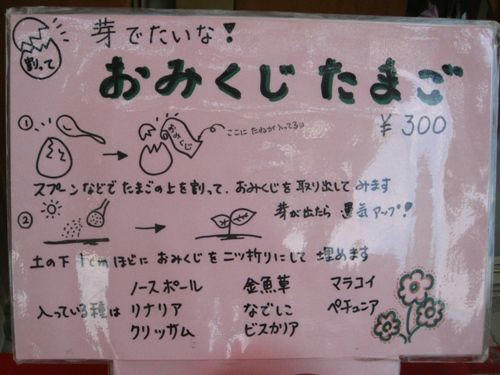 割って
芽でたいな！
おみくじたまご
¥300
①
おみくじ
ここにたねが入ってるよ
スプーンなどでたまごの上を割って、おみくじを取り出してみます
②
芽が出たら 運気アップ！
土の下1cmほどにおみくじを二ツ折りにして埋めます
ノースポール 金魚草 マラコイ
入っている種は リナリア なでしこ ペチュニア
クリッサム ビスカリア